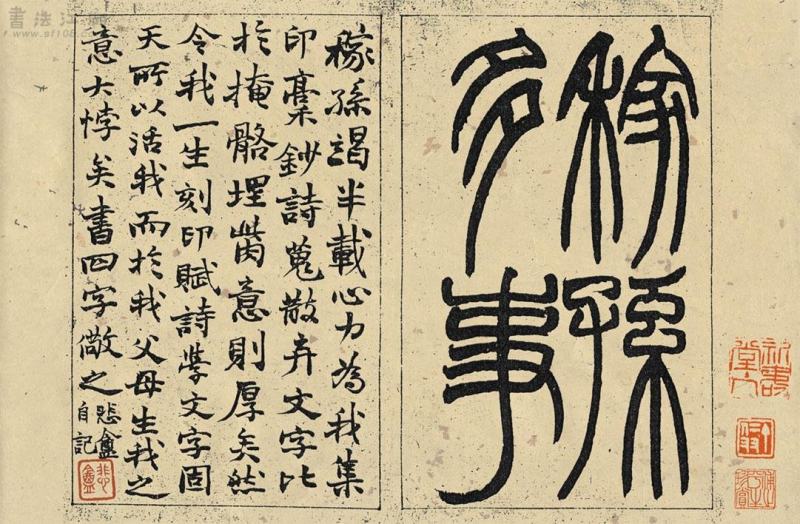 稼孫
多事
稼孫竭半載心力為我集
印稾鈔詩蒐散弃文字比
於掩骼埋胔意則厚矣然
令我一生刻印賦詩學文字固
天所以活我而於我父母生我之
意大悖矣書四字儆之
悲盦
自記
悲盦
書法江湖
www.sf108.com